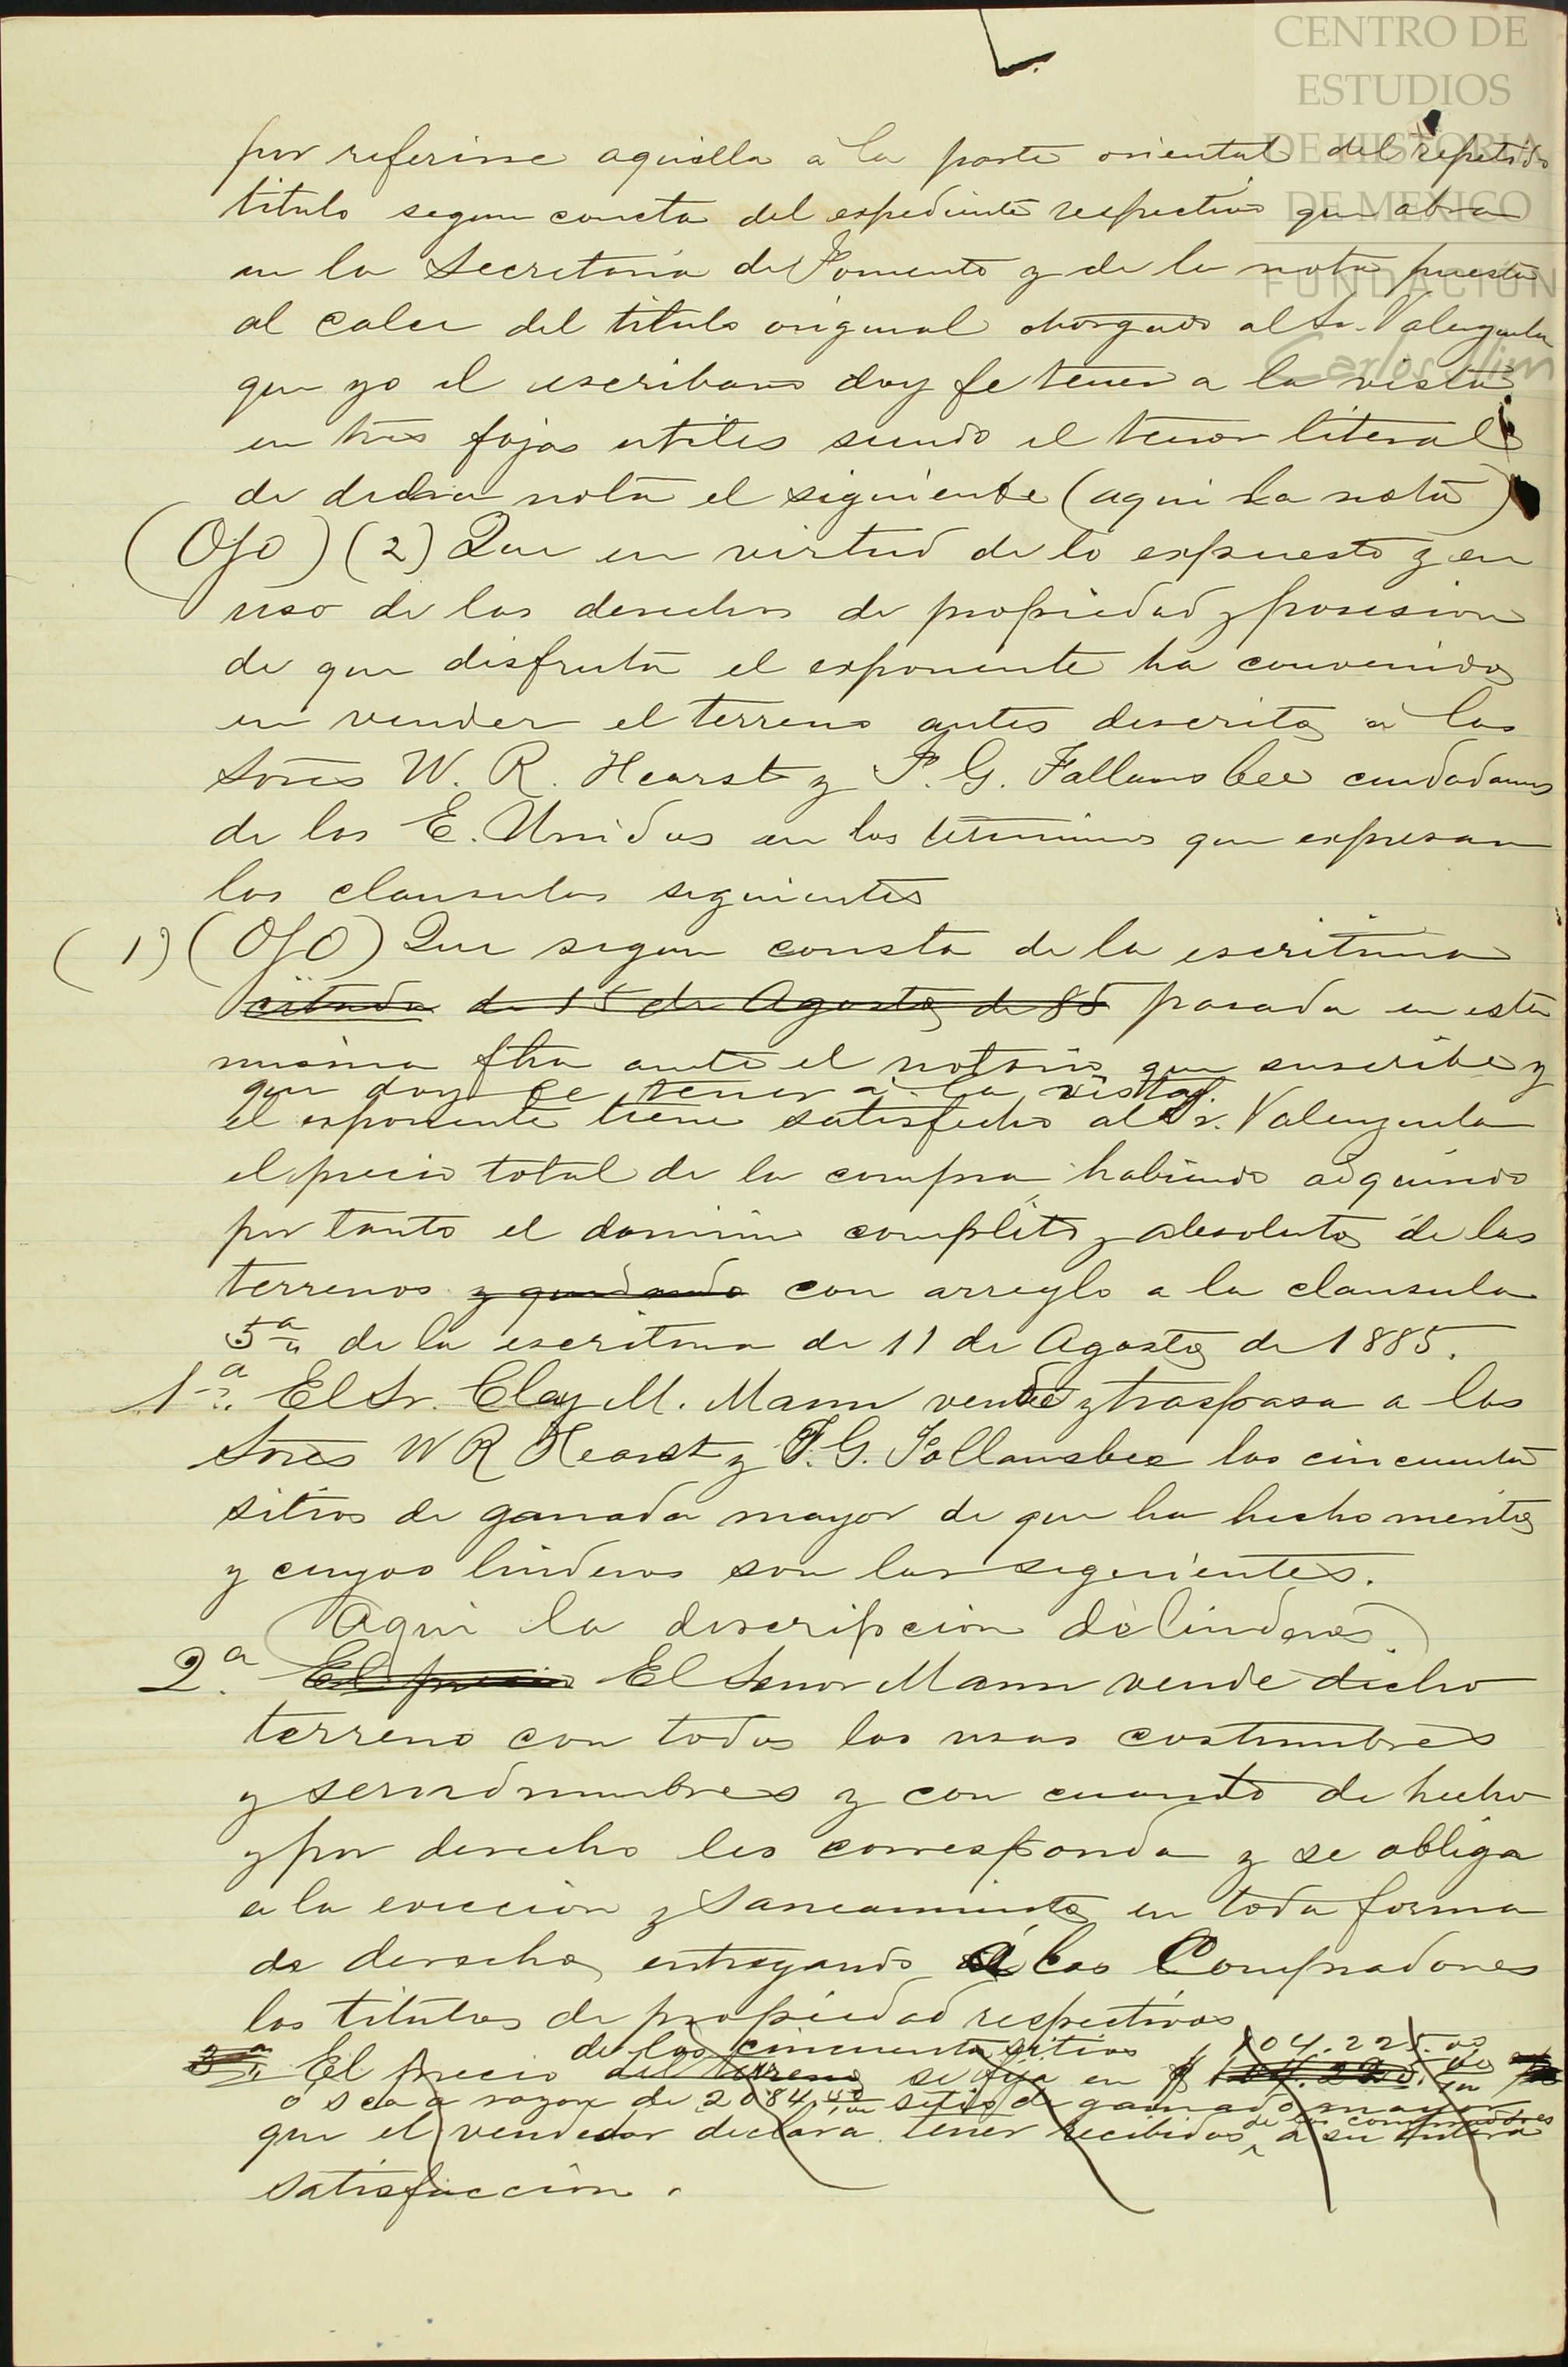 CENTRO DE
ESTUDIOS
DE HISTORIA
DE MEXICO
FUNDACIÓN
Carlos Slim
por referirse aquella a la parte oriental del repetido
titulo segun consta del espediente respectivo que obra
en la Secretaria de Fomento y de la nota puesta
al calce del titulo original otorgado al Sr. Valenzuela
que yo el escribano doy fe tener a la vista
en tres fojas utiles siendo el tenor literal
de dicha nota el siguiente (aqui la nota)
(Ojo) (2) Que en virtud de lo expuesto y en
uso de los derechos de propiedad y posesion
de que disfruta el exponente ha convenido
en vender el terreno antes descrito á los
Sores W. R. Hearst y F. G. Fallansbee ciudadanos
de los E. Unidos en los terminos que expresan
las clausulas siguientes
(1) (Ojo) Que segun consta de la escritura
citada de 15 de Agosto de 85 pasada en esta
misma fha ante el notario que suscribe y
que doy fe tener a la vista.
el exponente tiene satisfecho al Sr. Valenzuela
el precio total de la compra habiendo adquirido
por tanto el dominio completo y absoluto de los
terrenos y quedando con arreglo a la clausula
5a de la escritura de 11 de Agosto de 1885.
1a. El Sr. Clay M. Mann vende y traspasa a los
Sores W R Hearst y F. G. Follansbee los cincuenta
sitios de ganado mayor de que ha hecho merito
y cuyos linderos son los siguientes.
(Aqui la descripcion de linderos.)
2a. El precio El Senor Mann vende dicho
terreno con todos los usos costumbres
y servidumbres y con cuanto de hecho
y por derecho les corresponda y se obliga
a la eviccion y saneamiento en toda forma
de derecho, entregando á los Compradores
los titulos de propiedad respectivos
de los cincuenta sitios 104.225.00
3a. El precio del terreno se fija en $ 104.225.00
ó sea a razon de 2084 sitio de ganado mayor
de los compradores
que el vendedor declara tener recibidos a su entera
satisfaccion.